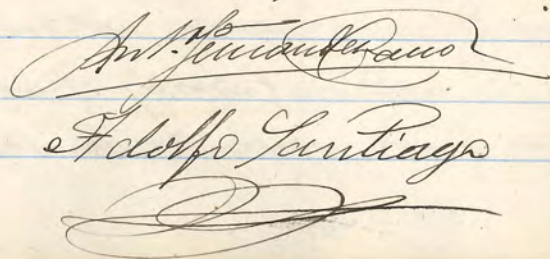 Antº Fernandez Cano
Adolfo Santiago